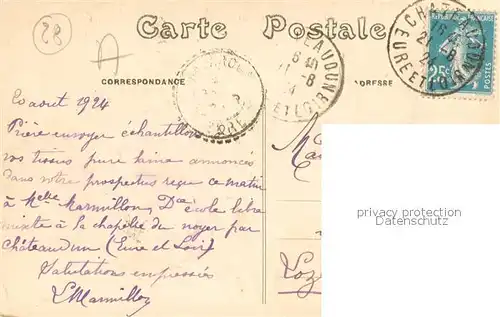 28
Carte Postale
CORRESPONDANCE
ADRESSE
CHATEAUDUN
EURE ET LOIR
25c
20 août 1924
Prière envoyer échantillons
vos tissus pure laine annoncés
dans votre prospectus reçu ce matin
à Melle Marmillon, Dce école libre
mixte à la chapelle du noyer par
Châteaudun (Eure et Loir)
Salutations empressées
L Marmillon
privacy protection
Datenschutz
Loz